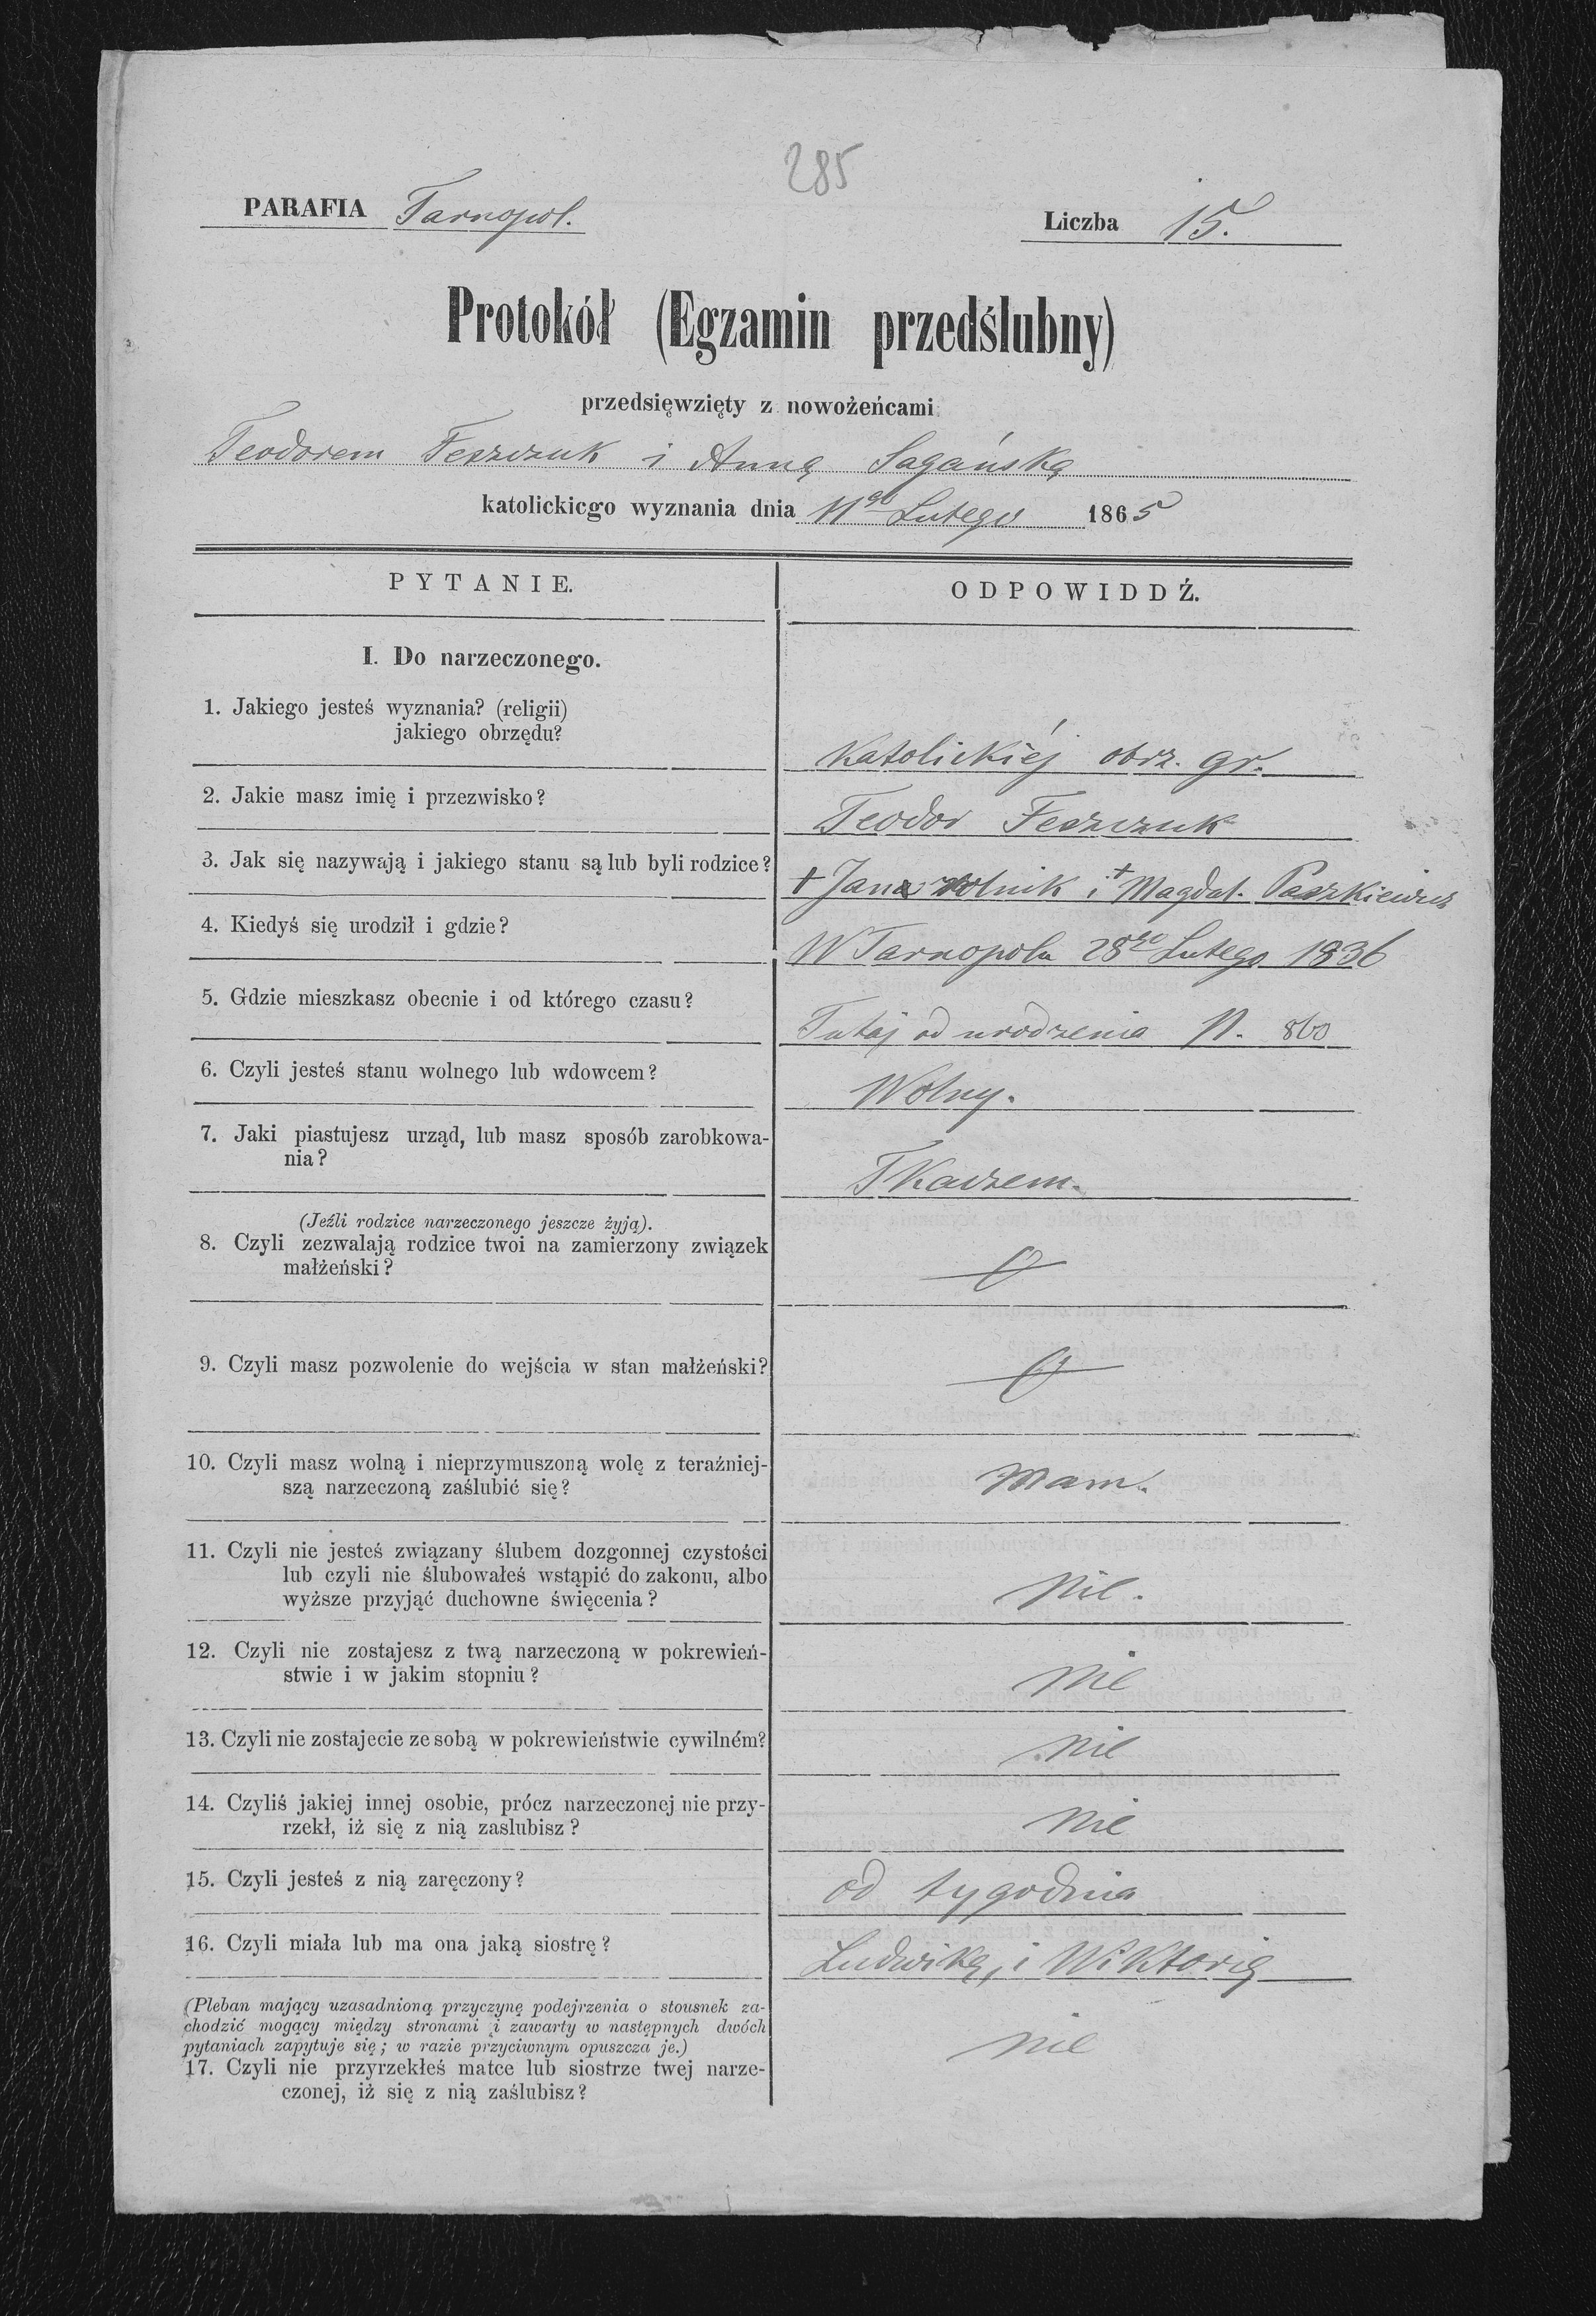 285
PARAFIA Tarnopol.
Liczba 15.
Protokół (Egzamin przedślubny)
przedsięwzięty z nowożeńcami
Teodorem Feszczuk i Anną Sagańską
katolickiego wyznania dnia 11go Lutego 1865
PYTANIE.
ODPOWIDDŹ.
I. Do narzeczonego.
1. Jakiego jesteś wyznania? (religii)
jakiego obrzędu?
Katolickiéj obrz. gr.
2. Jakie masz imię i przezwisko?
Teodor Feszczuk
3. Jak się nazywają i jakiego stanu są lub byli rodzice?
† Jan rolnik i † Magdal. Paszkiewicz
4. Kiedyś się urodził i gdzie?
W Tarnopolu 28go Lutego 1836
5. Gdzie mieszkasz obecnie i od którego czasu?
Tutaj od urodzenia N. 860
6. Czyli jesteś stanu wolnego lub wdowcem?
Wolny.
7. Jaki piastujesz urząd, lub masz sposób zarobkowa-
nia?
Tkaczem.
(Jeźli rodzice narzeczonego jeszcze żyją).
8. Czyli zezwalają rodzice twoi na zamierzony związek
małżeński?
9. Czyli masz pozwolenie do wejścia w stan małżeński?
10. Czyli masz wolną i nieprzymuszoną wolę z teraźniej-
szą narzeczoną zaślubić się?
Mam.
11. Czyli nie jesteś związany ślubem dozgonnej czystości
lub czyli nie ślubowałeś wstąpić do zakonu, albo
wyższe przyjąć duchowne święcenia?
nie.
12. Czyli nie zostajesz z twą narzeczoną w pokrewień-
stwie i w jakim stopniu?
nie
13. Czyli nie zostajecie ze sobą w pokrewieństwie cywilném?
nie
14. Czyliś jakiej innej osobie, prócz narzeczonej nie przy-
rzekł, iż się z nią zaslubisz?
nie
15. Czyli jesteś z nią zaręczony?
od tygodnia
16. Czyli miała lub ma ona jaką siostrę?
Ludwikę, i Wiktorię
(Pleban mający uzasadnioną przyczynę podejrzenia o stousnek za-
chodzić mogący między stronami i zawarty w następnych dwóch
pytaniach zapytuje się; w razie przyciwnym opuszcza je.)
17. Czyli nie przyrzekłeś matce lub siostrze twej narze-
czonej, iż się z nią zaślubisz?
nie